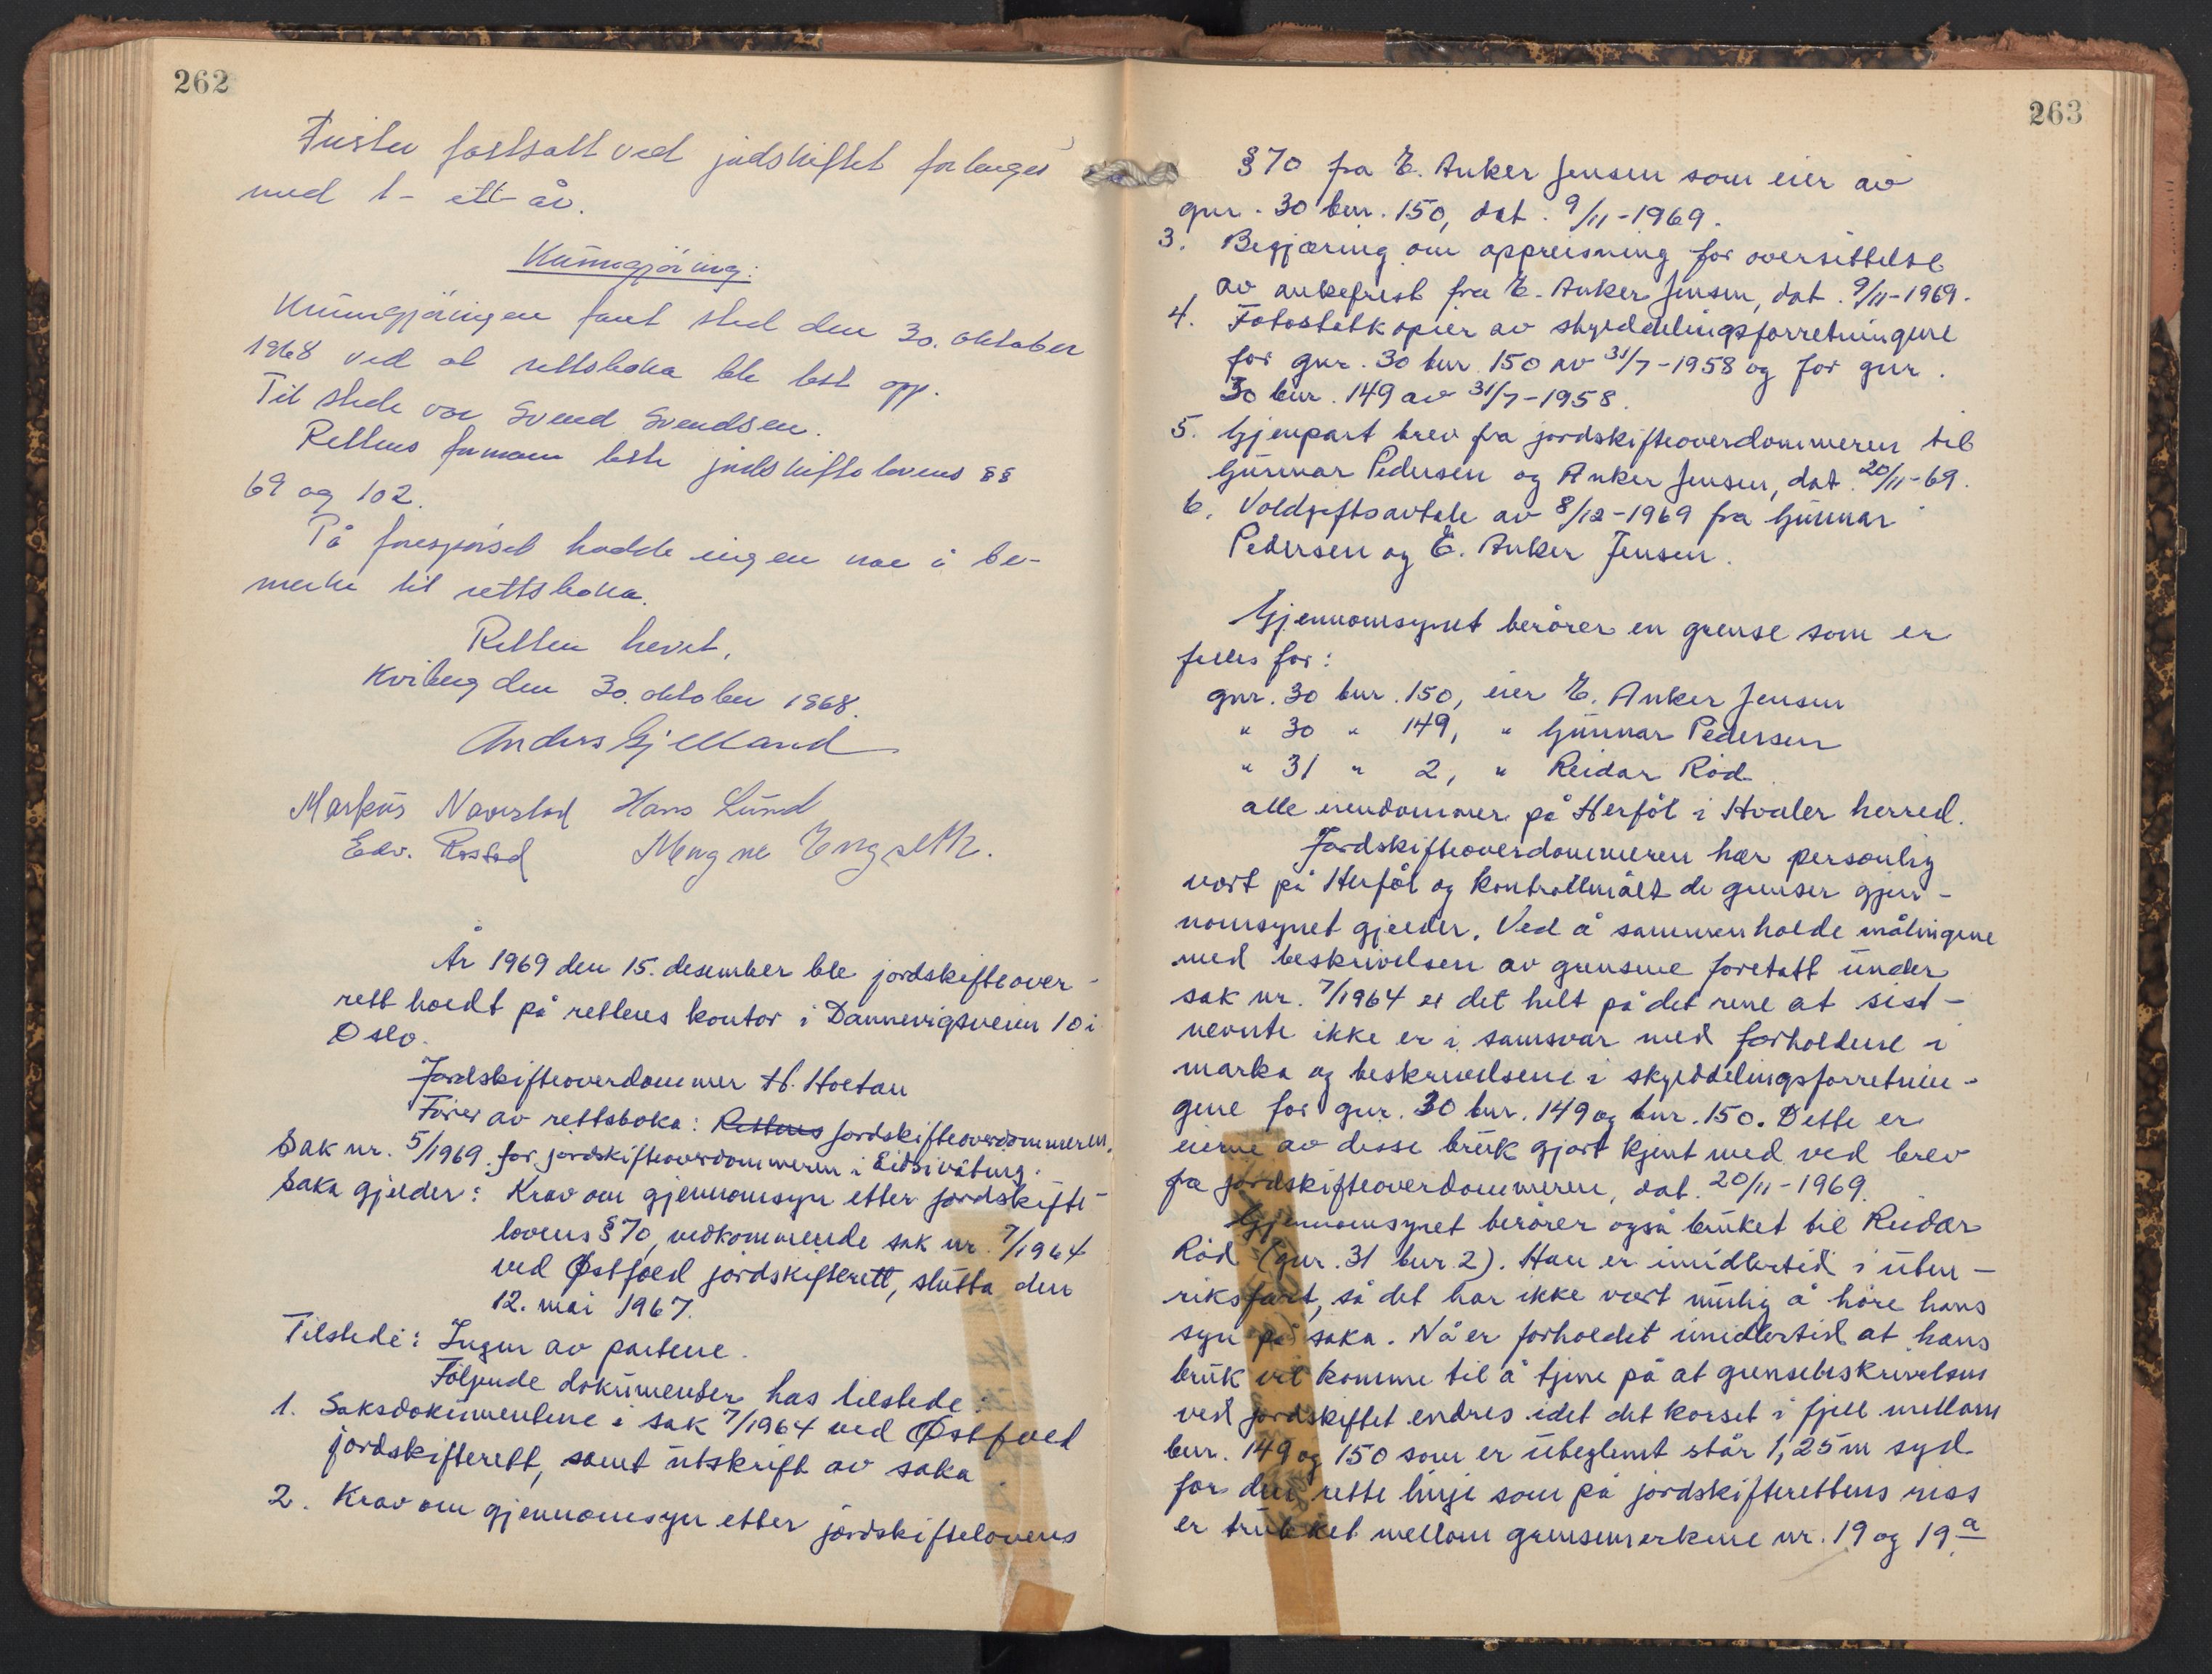 262
Fristen fastsatt ved jordskiftet forlenges
med 1 - ett - år.
Kunngjöring:
Kunngjöringen fant sted den 30. oktober
1968 ved at rettsboka ble lest opp.
Til stede var Svend Svendsen.
Rettens formann leste jordskiftelovens §§
69 og 102.
På forespörsel hadde ingen noe å be-
merke til rettsboka.
Retten hevet,
Kviberg den 30. oktober 1968.
Anders Gjelland
Markus Navestad Hans Lund
Edv. Rostad Magne Engseth.
År 1969 den 15. desember ble jordskifteover-
rett holdt på rettens kontor i Dannevigsveien 10 i
Oslo.
Jordskifteoverdommer H. Hoetau
Förer av rettsboka: Rettens jordskifteoverdommeren.
Sak nr. 5/1969 for jordskifteoverdommeren i Eidsivating.
Saka gjelder: Krav om gjennomsyn etter jordskifte-
lovens § 70, vedkommende sak nr. 7/1964
ved Østfold jordskifterett, slutta den
12. mai 1967.
Tilstede: Ingen av partene.
Fölgende dokumenter has tilstede:
1. Saksdokumentene i sak 7/1964 ved Østfold
jordskifterett, samt utskrift av saka
2. Krav om gjennomsyn etter jordskiftelovens
263
§ 70 fra E. Anker Jensen som eier av
gnr. 30 bnr. 150, dat. 9/11-1969.
3. Begjæring om oppreisning for oversittelse
av ankefrist fra E. Anker Jensen, dat. 9/11-1969.
4. Fotostatkopier av skylddelingsforretningene
for gnr. 30 bnr 150 av 31/7-1958 og for gnr.
30 bnr. 149 av 31/7-1958.
5. Gjenpart brev fra jordskifteoverdommeren til
Gunnar Pedersen og Anker Jensen, dat. 20/11-69.
6. Voldgiftsavtale av 8/12-1969 fra Gunnar
Pedersen og E. Anker Jensen.
Gjennomsynet berörer en grense som er
felles for:
gnr. 30 bnr. 150, eier E. Anker Jensen
" 30 " 149, " Gunnar Pedersen
" 31 " 2, " Reidar Röd
alle eiendommer på Herföl i Hvaler herred.
Jordskifteoverdommeren har personlig
vært på Herföl og kontrollmålt de grenser gjen-
nomsynet gjelder. Ved å sammenholde målingene
med beskrivelsen av grensene foretatt under
sak nr. 7/1964 er det helt på det rene at sist-
nevnte ikke er i samsvar med forholdene i
marka og beskrivelsene i skylddelingsforretnin-
gene for gnr. 30 bnr. 149 og bnr. 150. Dette er
eierne av disse bruk gjort kjent med ved brev
fra jordskifteoverdommeren, dat. 20/11-1969.
Gjennomsynet berörer også bruket til Reidar
Röd (gnr. 31 bnr. 2). Han er imidlertid i uten-
riksfart, så det har ikke vært mulig å höre hans
syn på saka. Nå er forholdet imidlertid at hans
bruk vil komme til å tjene på at grensebeskrivelsen
ved jordskiftet endres idet det korset i fjell mellom
bnr. 149 og 150 som er uteglemt står 1,25 m syd
for den rette linje som på jordskifterettens riss
er trukket mellom grensemerkene nr. 19 og 19 a